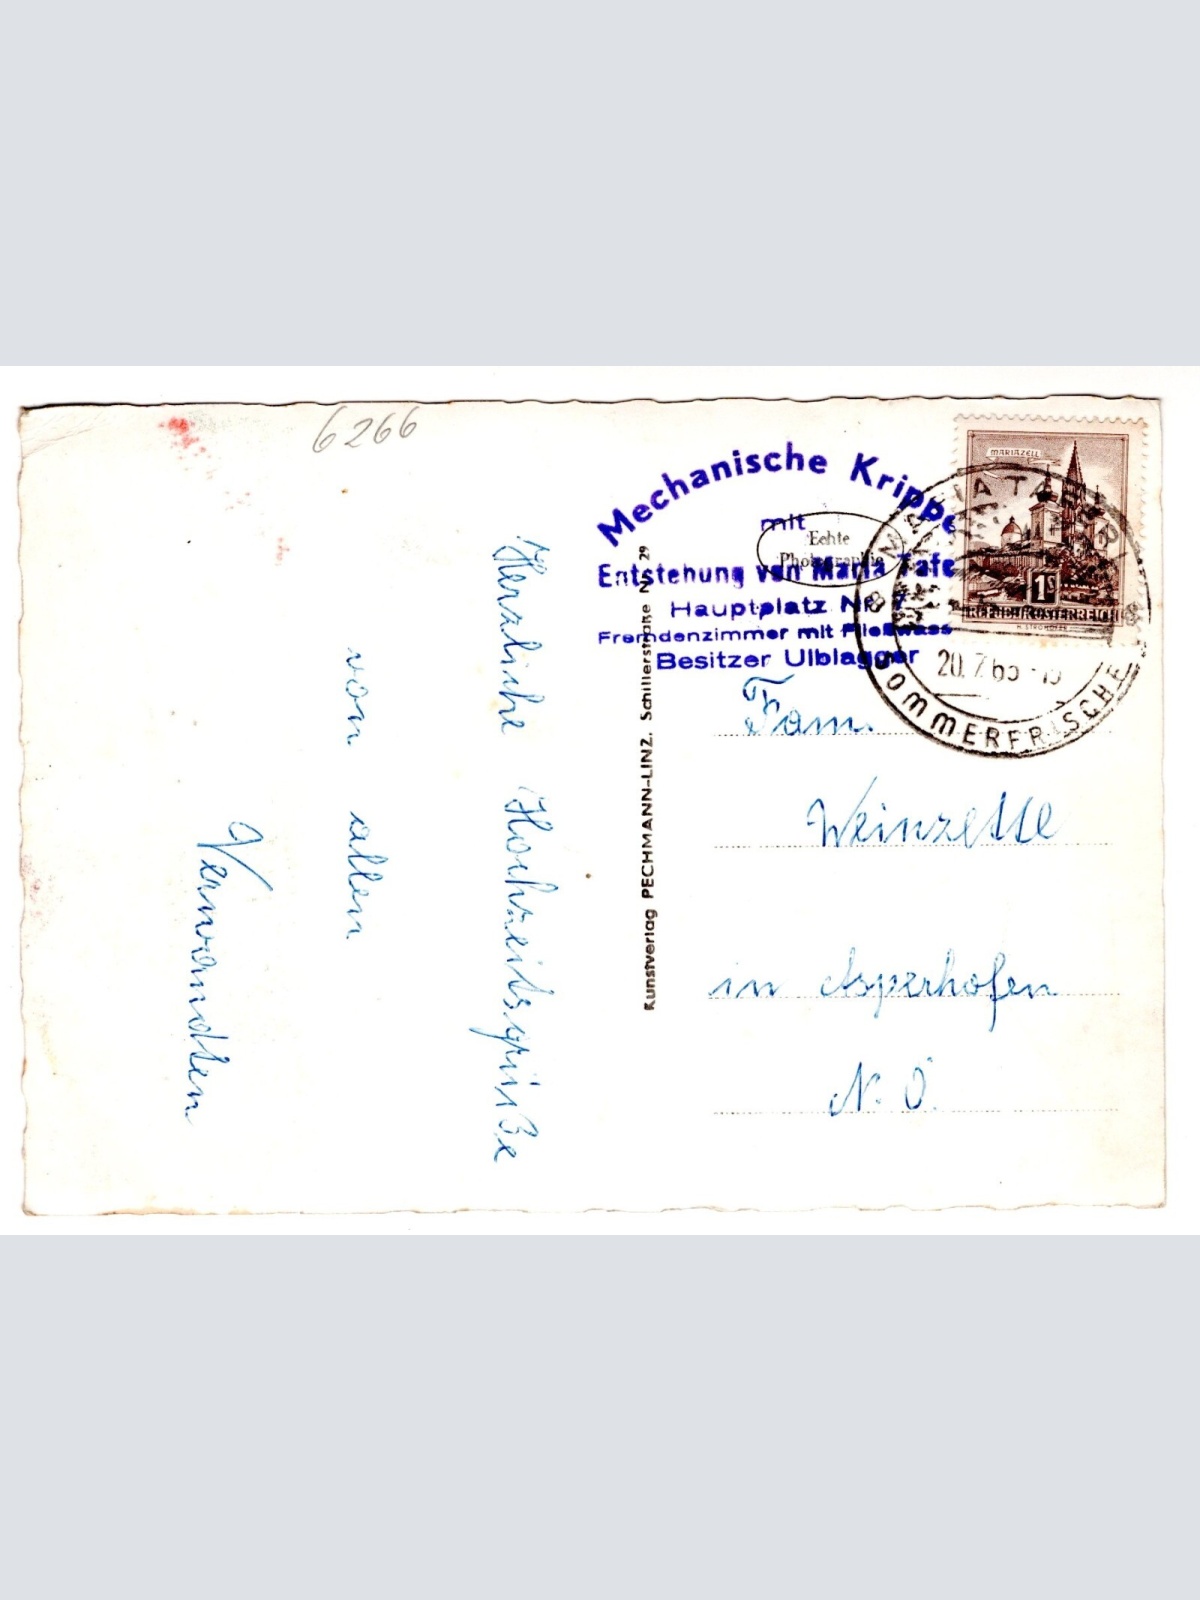 6266
Mechanische Krippe
mit
Echte
Photographie
Entstehung von Maria Tafe
Hauptplatz Nr. 7
Fremdenzimmer mit Fließwass
Besitzer Ulblagger
MARIAZELL
1S
REPUBLIK ÖSTERREICH
MARIA TAFERL
20.7.65
SOMMERFRISCHE
Kunstverlag PECHMANN-LINZ, Schillerstraße Nr. 29
Herzliche Hochzeitsgrüße
von allen
Verwandten
Fam.
Weinzettl
in Asperhofen
N. Ö.